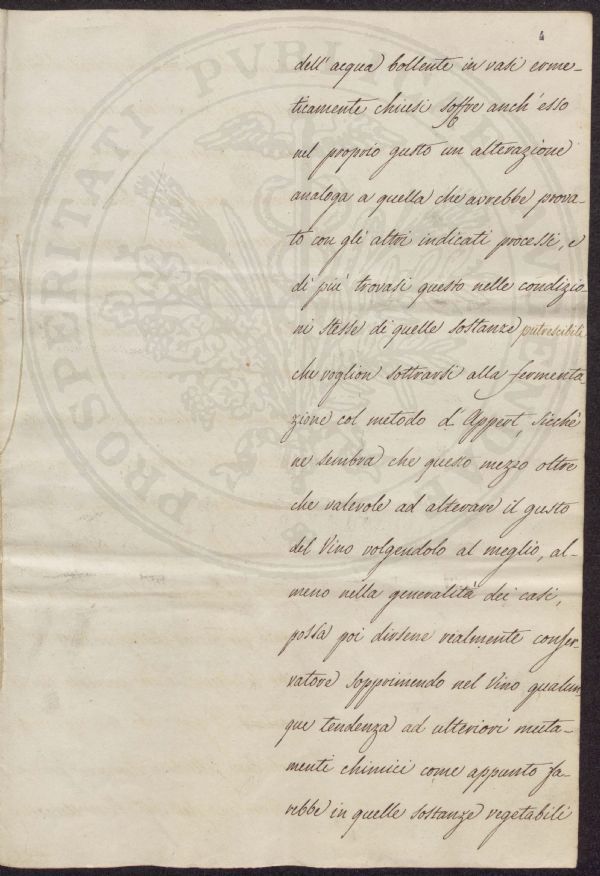 4
dell'acqua bollente in vasi erme-
ticamente chiusi soffre anch'esso
nel proprio gusto un alterazione
analoga a quella che avrebbe prova-
to con gli altri indicati processi, e
di più trovasi questo nelle condizio
ni stesse di quelle sostanze putrescibili
che voglion sottrarsi alla fermenta
zione col metodo d'Appert, sicchè
ne sembra che questo mezzo oltre
che valevole ad alterare il gusto
del Vino volgendolo al meglio, al-
meno nella generalità dei casi,
possa poi dirsene realmente conser-
vatore sopprimendo nel Vino qualun-
que tendenza ad ulteriori muta-
menti chimici come appunto fa-
rebbe in quelle sostanze vegetabili
PROSPERITATI PVBLI